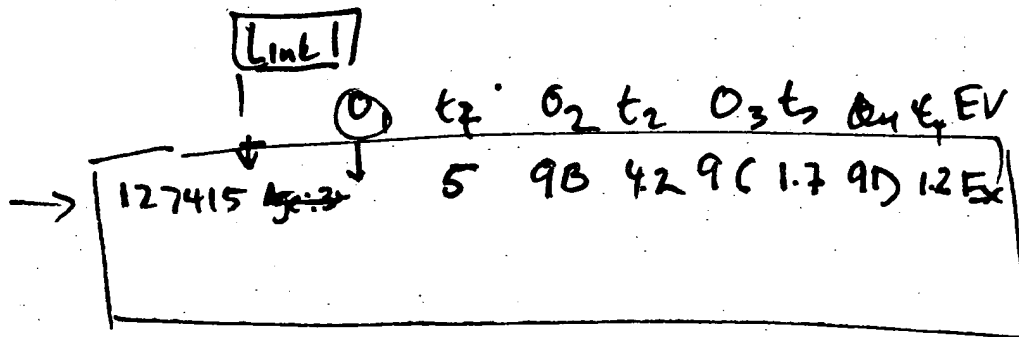 Link 1
O1 t2 O2 t2 O3 t3 O4 t4 EV
127415 5 9B 4.2 9C 1.7 9D 1.2 Ex